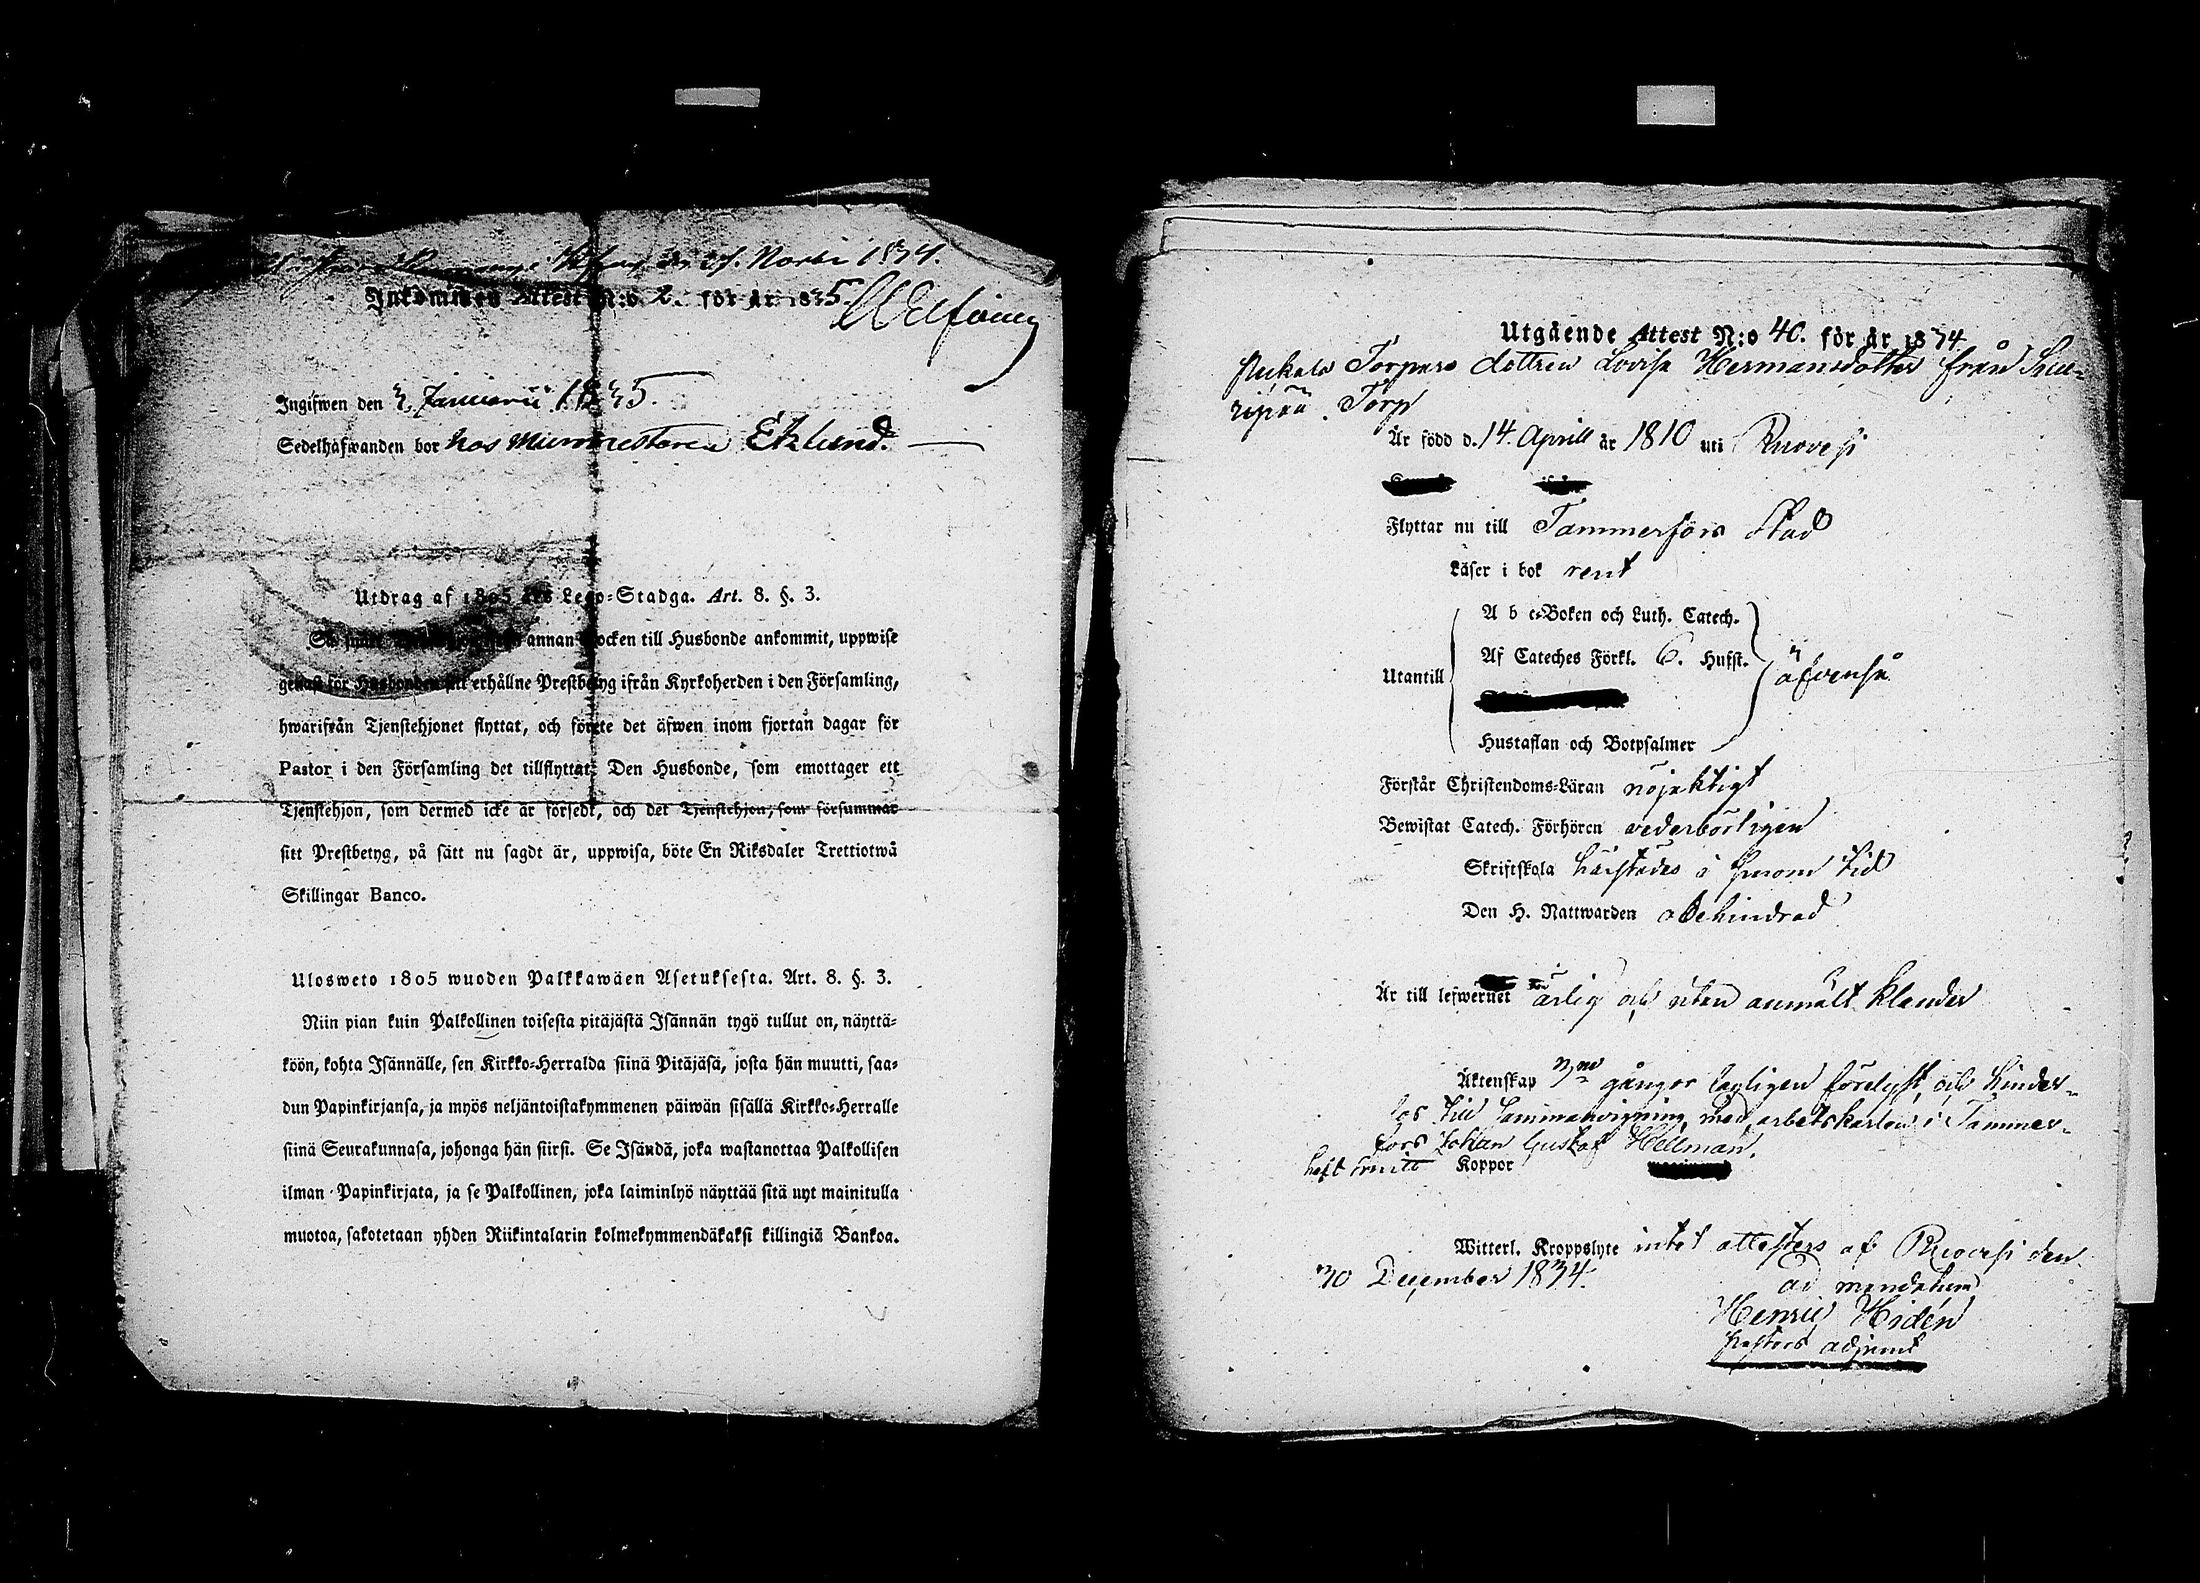 den 27. Novbr 1834.
Inkommen Attest N:o 2. för år 1835.
Ingifwen den 3 Januarii 1835.
Sedelhafwanden bor hos Murmestaren Eklund.
Utdrag af 1805 års Lego-Stadga. Art. 8. §. 3.
annan Socken till Husbonde ankommit, uppwise
genast för Husbonden sitt erhållne Prestbetyg ifrån Kyrkoherden i den Församling,
hwarifrån Tjenstehjonet flyttat, och förete det äfwen inom fjortan dagar för
Pastor i den Församling det tillflyttat. Den Husbonde, som emottager ett
Tjenstehjon, som dermed icke är försedt, och det Tjenstehjon, som försummar
sitt Prestbetyg, på sätt nu sagdt är, uppwisa, böte En Riksdaler Trettiotwå
Skillingar Banco.
Ulosweto 1805 wuoden Palkkawäen Asetuksesta. Art. 8. §. 3.
Niin pian kuin Palkollinen toisesta pitäjästä Isännän tygö tullut on, näyttä-
köön, kohta Isännälle, sen Kirkko-Herralda siinä Pitäjäsä, josta hän muutti, saa-
dun Papinkirjansa, ja myös neljäntoistakymmenen päiwän sisällä Kirkko-Herralle
siinä Seurakunnasa, johonga hän siirsi. Se Isändä, joka wastanottaa Palkollisen
ilman Papinkirjata, ja se Palkollinen, joka laiminlyö näyttää sitä nyt mainitulla
muotoa, sakotetaan yhden Riikintalarin kolmekymmendäkaksi killingiä Bankoa.
Utgående Attest N:o 40. för år 1834
Torpare dottren Lovisa Hermansdotter från
Torp
Är född d. 14. Aprill år 1810 uti Ruovesi
Flyttar nu till Tammerfors Stad
Läser i bok rent
A b c-Boken och Luth. Catech.
Af Cateches Förkl. 6. Hufst.
Utantill äfvenså
Hustaflan och Botpsalmer
Förstår Christendoms-Läran nöjaktigt
Bewistat Catech. Förhören vederbörligen
Skriftskola härstädes i sinom tid
Den H. Nattwarden obehindrad
Är till lefwernet ärlig och utan anmält klander
Äktenskap 3ne gångor lagligen förelyst, och hinder-
lös till sammanvigning med arbetskarlen i Tammer-
fors Johan Gustaf Hellman.
haft Koppor
Witterl. Kroppslyte intet attesters af Ruovesi den
30 December 1834.
ad mandatum
Henric Hidén
pastors adjunct